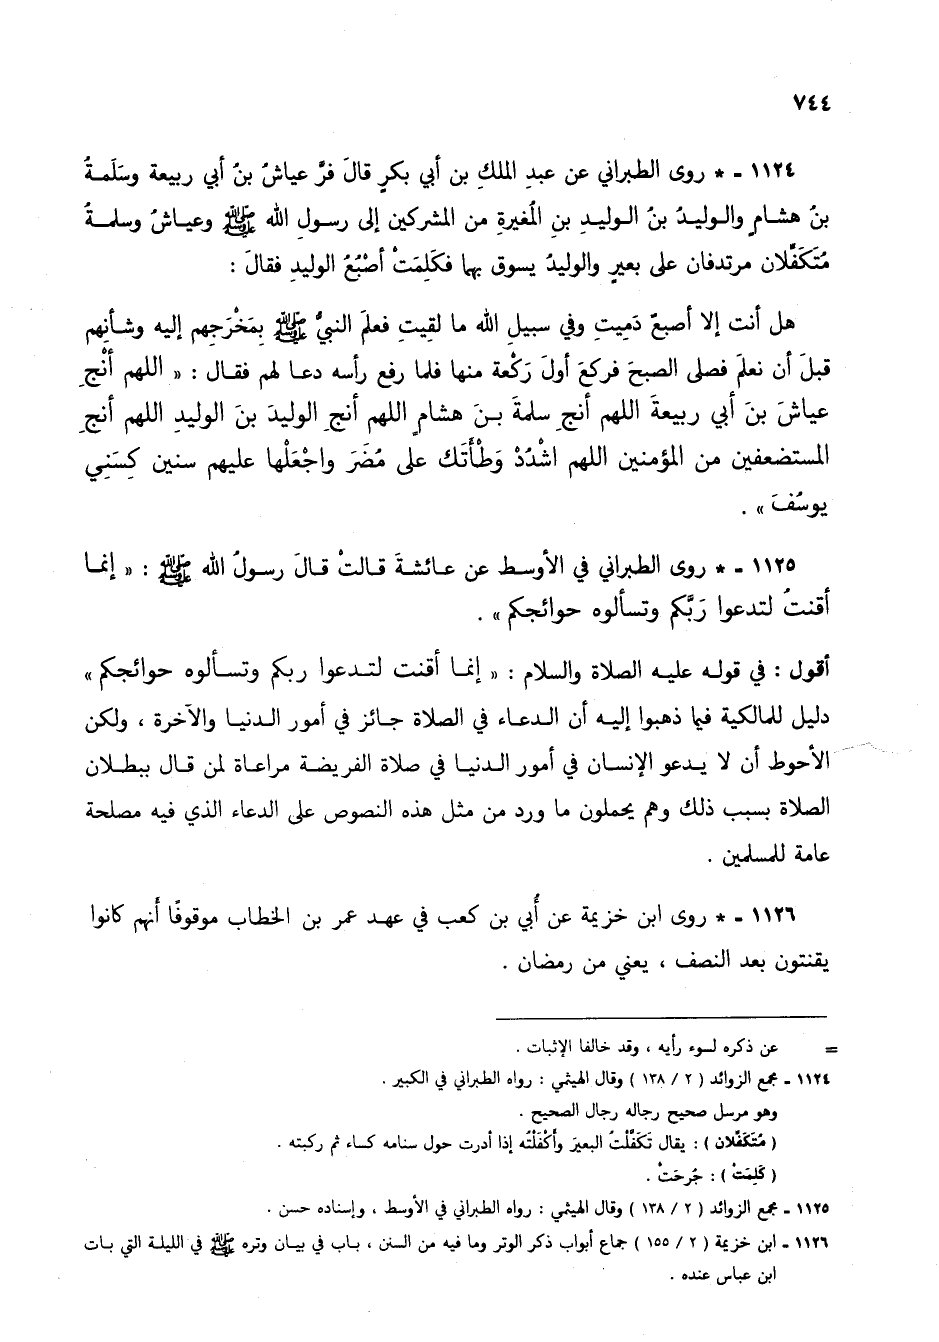 ٧٤٤
١١٢٤ - * روى الطبراني عن عبدِ الملكِ بن أبي بكرٍ قالَ فرَّ عياشُ بنُ أبي ربيعة وسَلَمةُ
بنُ هشامٍ والوليدُ بنُ الوليدِ بنِ المُغيرةِ من المشركين إلى رسول الله ﷺ وعياشُ وسلمةُ
مُتَكَفِّلان مرتدفان على بعيرٍ والوليدُ يسوق بهما فكَلِمَتْ أصْبُعُ الوليدِ فقالَ :
هل أنت إلا أصبعٌ دَميتِ وفي سبيل الله ما لقيتِ فعلمَ النبيُّ ﷺ بِمَخْرَجِهم إليه وشأنِهم
قبلَ أن نعلمَ فصلى الصبحَ فركعَ أولَ رَكْعة منها فلما رفع رأسه دعا لهم فقال : « اللهم أنْجِ
عياشَ بنَ أبي ربيعةَ اللهم أنجِ سلمةَ بنَ هشامٍ اللهم أنجِ الوليدَ بنَ الوليدِ اللهم أنجِ
المستضعفين من المؤمنين اللهم اشْدُدْ وَطْأَتَك على مُضَرَ واجْعَلْها عليهم سنين كِسَنِي
يوسُفَ » .
١١٢٥ - * روى الطبراني في الأوسط عن عائشةَ قالتْ قالَ رسولُ الله ﷺ : « إنما
أقنتُ لتدعوا رَبَّكم وتسألوه حوائجكم » .
أقول : في قوله عليه الصلاة والسلام : « إنما أقنت لتدعوا ربكم وتسألوه حوائجكم »
دليل للمالكية فيما ذهبوا إليه أن الدعاء في الصلاة جائز في أمور الدنيا والآخرة ، ولكن
الأحوط أن لا يدعو الإنسان في أمور الدنيا في صلاة الفريضة مراعاة لمن قال ببطلان
الصلاة بسبب ذلك وهم يحملون ما ورد من مثل هذه النصوص على الدعاء الذي فيه مصلحة
عامة للمسلمين .
١١٢٦ - * روى ابن خزيمة عن أُبي بن كعب في عهد عمر بن الخطاب موقوفًا أنهم كانوا
يقنتون بعد النصف ، يعني من رمضان .
= عن ذكره لسوء رأيه ، وقد خالفا الإثبات .
١١٢٤ - مجمع الزوائد ( ٢ / ١٣٨ ) وقال الهيثمي : رواه الطبراني في الكبير .
وهو مرسل صحيح رجاله رجال الصحيح .
( مُتَكَفِّلان ) : يقال تَكَفَّلْتُ البعيرَ وأكْفَلْتُه إذا أدرت حول سنامه كساء ثم ركبته .
( كَلِمَتْ ) : جُرحَتْ .
١١٢٥ - مجمع الزوائد ( ٢ / ١٣٨ ) وقال الهيثمي : رواه الطبراني في الأوسط ، وإسناده حسن .
١١٢٦ - ابن خزيمة ( ٢ / ١٥٥ ) جماع أبواب ذكر الوتر وما فيه من السنن ، باب في بيان وتره ﷺ في الليلة التي بات
ابن عباس عنده .